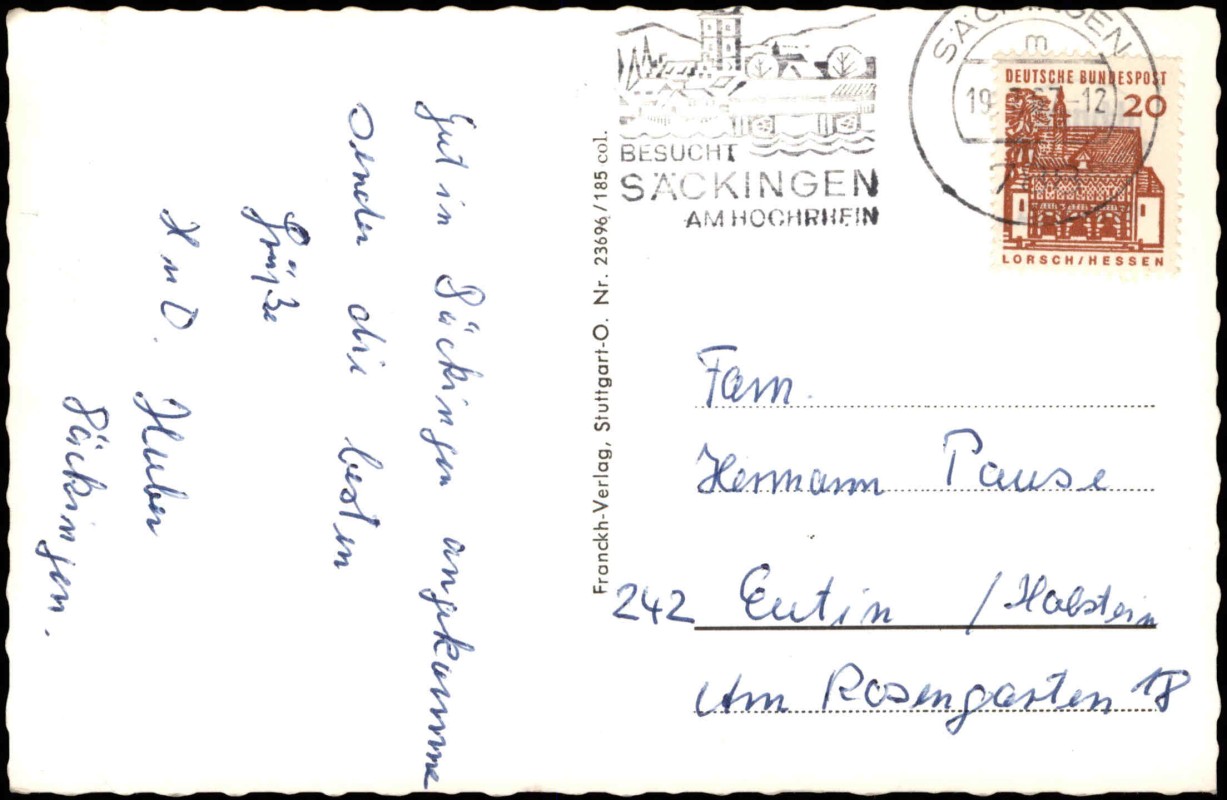 Gut in Säckingen angekomme
sendet die besten
Grüße
H u O. Huber
Säckingen.
Franckh-Verlag, Stuttgart-O. Nr. 23696/185 col.
BESUCHT
SÄCKINGEN
AM HOCHRHEIN
SÄCKINGEN
m
19. 67-12
DEUTSCHE BUNDESPOST
20
LORSCH/HESSEN
Fam.
Hermann Pause
242 Eutin / Holstein
Am Rosengarten 18